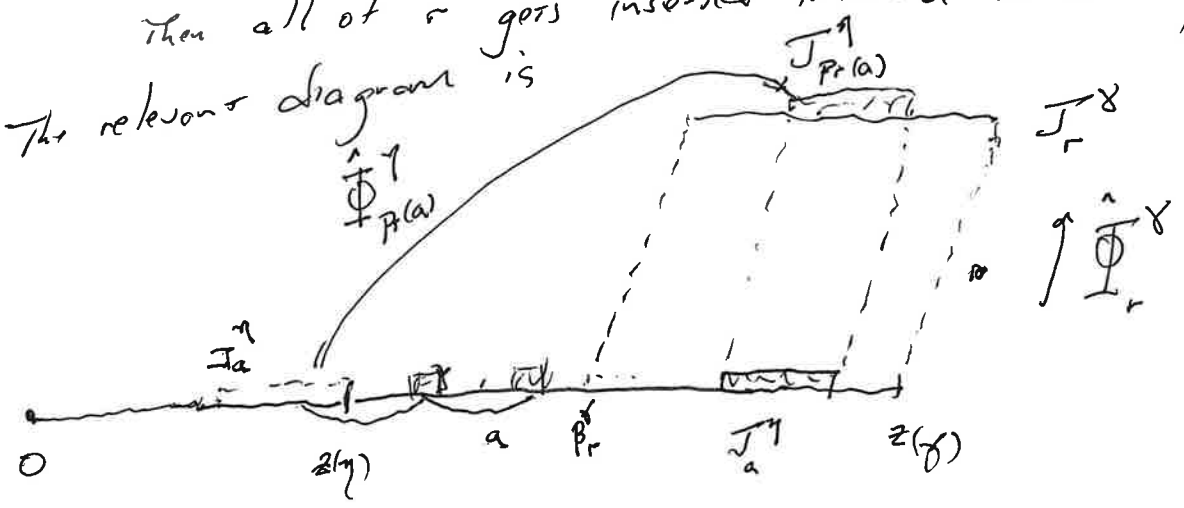 Then all of r gets
The relevant diagram is
J^η_{pr(a)}
J^γ_r
Φ̂^η_{pr(a)}
Φ̂^γ_r
I^η_a
0
z(η)
a
β^γ_r
J^η_a
z(γ)